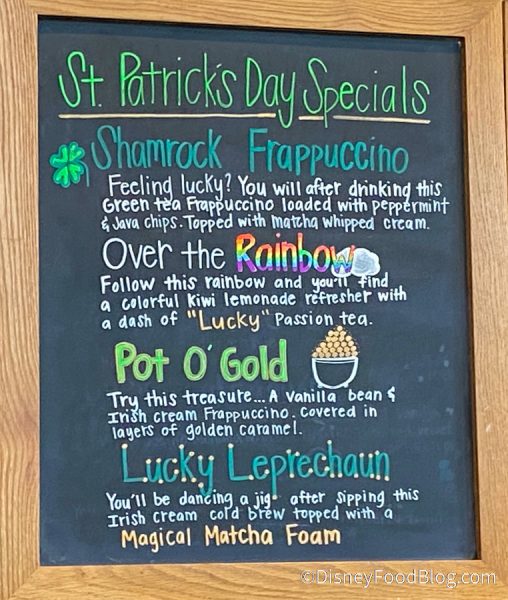 St. Patrick's Day Specials
Shamrock Frappuccino
Feeling lucky? You will after drinking this
Green tea Frappuccino loaded with peppermint
& Java chips. Topped with matcha whipped cream.
Over the Rainbow
Follow this rainbow and you'll find
a colorful Kiwi lemonade refresher with
a dash of "Lucky" Passion tea.
Pot O' Gold
Try this treasure... A vanilla bean &
Irish cream Frappuccino. Covered in
layers of golden caramel.
Lucky Leprechaun
You'll be dancing a jig after sipping this
Irish cream cold brew topped with a
Magical Matcha Foam
©DisneyFoodBlog.com